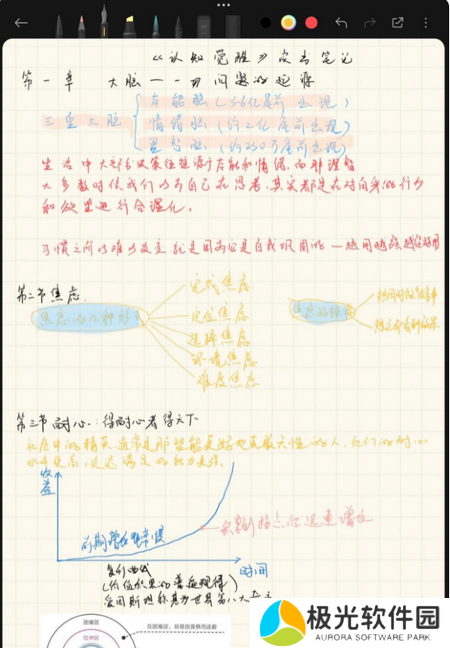 《认知觉醒》读书笔记
第一章 大脑——问题的起源
三重大脑
本能脑(3.6亿年前出现)
情绪脑(约2亿年前出现)
理智脑(约250万年前出现)
生活中大部分决策往往源于本能和情绪,而非理智
大多数时候我们以为自己在思考,其实都是在对自身的行为
和欲望进行合理化。
习惯之所以难以改变就是因为它是自我巩固的—越用越强越强越用
第二节焦虑
焦虑的几种形式
完成焦虑
定位焦虑
选择焦虑
环境焦虑
难度焦虑
焦虑的根源
想同时做很多事
想立即看到效果
第三节耐心:得耐心者得天下
社会中的精英通常是那些能更好地克服天性的人,他们的耐心
水平更高,延迟满足的能力更强
收益
前期增长非常缓慢
到达拐点后迅速增长
时间
复利曲线
(价值积累的普遍规律)
爱因斯坦称其为世界第八大奇迹
困难区
拉伸区
在困难区,容易因畏惧而逃避
极光软件园
AURORA SOFTWARE PARK